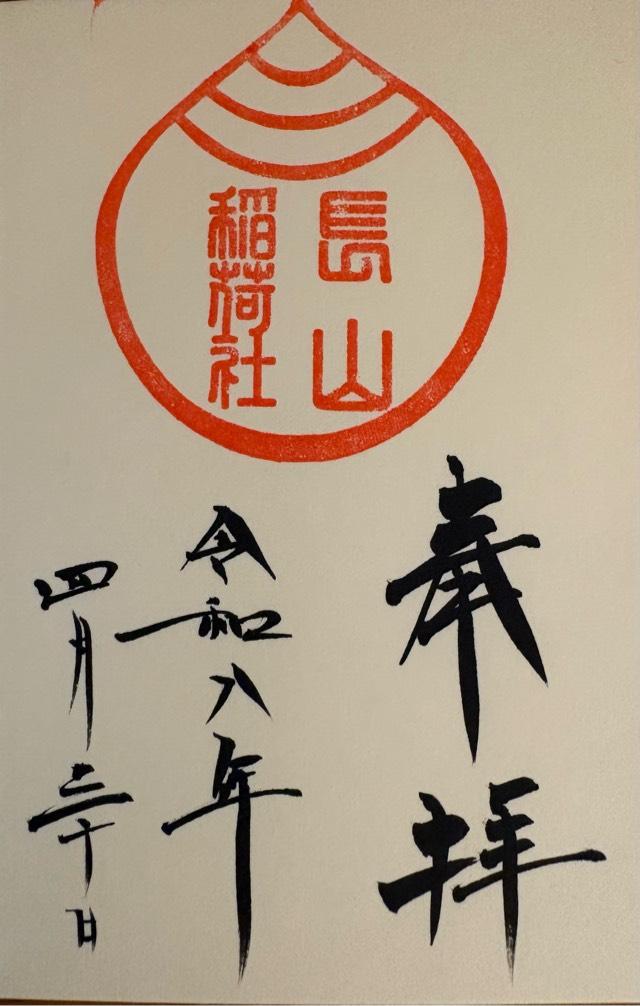 長山
稲荷社
奉拝
令和八年
四月三十日